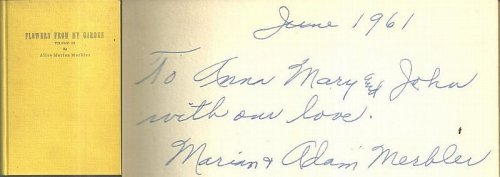 FLOWERS FROM MY GARDEN
By
Alice Marian Merbler
June 1961
To Anna Mary and John
with our love.
Marian & Adam Merbler